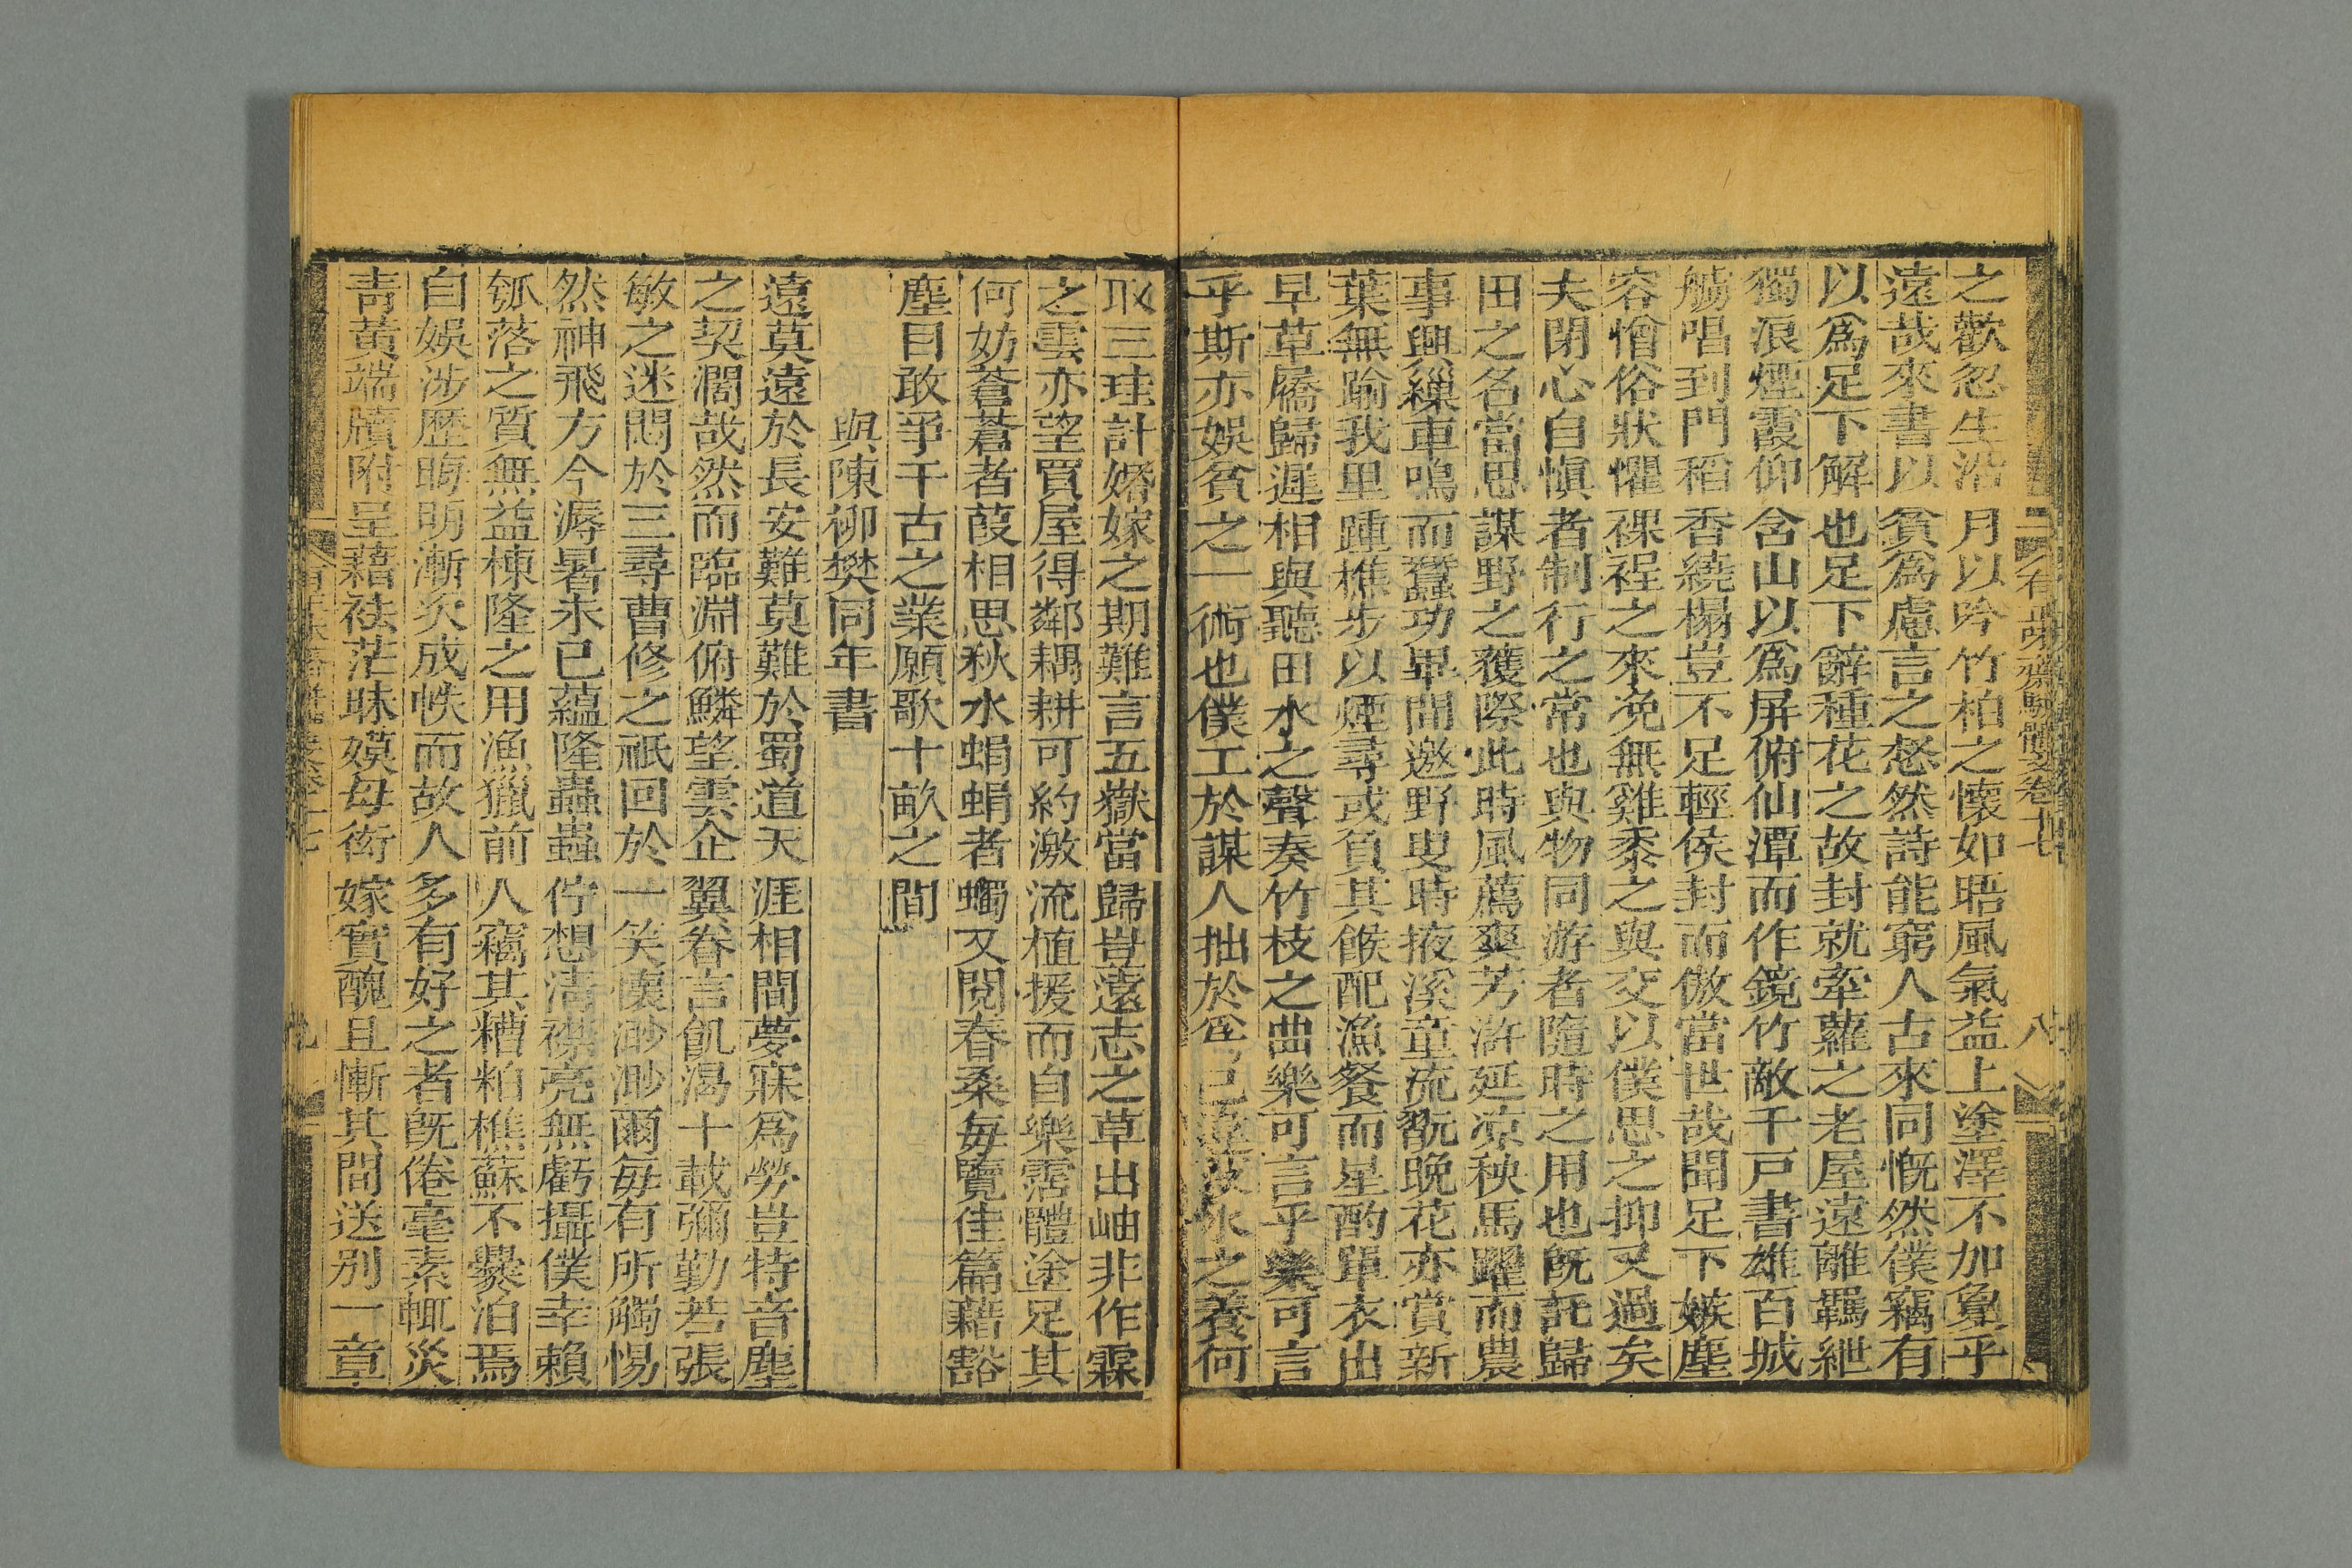 有正味齋駢體文卷十七
八
之歡忽生沿月以吟竹柏之懷如晤風氣益上塗澤不加敻乎
遠哉來書以貧爲慮言之愁然詩能窮人古來同慨然僕竊有
以爲足下解也足下辭種花之故封就牽蘿之老屋遠離羈紲
獨浪煙霞仰含山以爲屏俯仙潭而作鏡竹敵千戸書雄百城
觴唱到門稻香繞榻豈不足輕侯封而傲當世哉聞足下嫉塵
容憎俗狀懼裸裎之來浼無雞黍之與交以僕思之抑又過矣
夫閉心自愼者制行之常也與物同游者隨時之用也旣託歸
田之名當思謀野之獲際此時風薦爽芳滸延凉秧馬躍而農
事興繅車鳴而蠶功畢間邀野叟時掖溪童流翫晚花亦賞新
葉無踰我里踵樵步以煙尋或負其餱配漁餐而星酌單衣出
早草屩歸遲相與聽田水之聲奏竹枝之曲樂可言乎樂可言
乎斯亦娛貧之一術也僕工於謀人拙於之養何
取三珪計婚嫁之期難言五嶽當歸豈遠志之草出岫非作霖
之雲亦望買屋得鄰耦耕可約激流植援而自樂霑體塗足其
何妨蒼蒼者葭相思秋水蜎蜎者蠋又閱春桑每覽佳篇藉豁
塵目敢爭千古之業願歌十畝之間
與陳柳樊同年書
遠莫遠於長安難莫難於蜀道天涯相間夢寐爲勞豈特音塵
之契濶哉然而臨淵俯鱗望雲企翼眷言飢渴十載彌勤若張
敏之迷悶於三尋曹修之祇回於一笑懷渺渺爾每有所觸惕
然神飛方今溽暑未已蘊隆蟲蟲佇想清襟亮無虧攝僕幸賴
瓠落之質無益棟隆之用漁獵前人竊其糟粕樵蘇不爨泊焉
自娛涉歷晦明漸次成帙而故人多有好之者旣倦毫素輒災
靑黃端牘附呈藉袪茫昧嫫母衒嫁實醜且慚其間送别一章
九